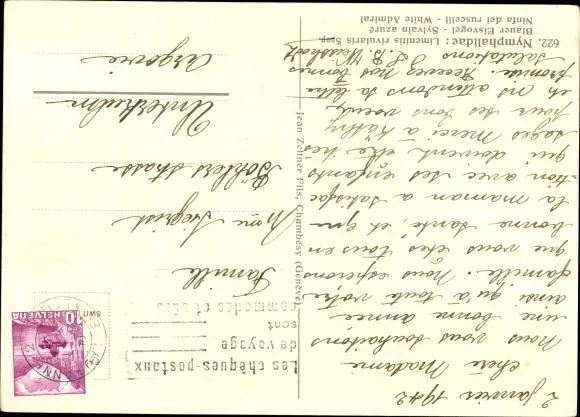 622. Nymphalidae: Limenitis rivularis Scop.
Blauer Eisvogel - Sylvain azuré
Ninfa dei ruscelli - White Admiral
2 janvier 1942
chère Madame
nous vous souhaitons
une bonne année
ainsi qu'à toute votre
famille. Nous espérons
que vous êtes tous en
bonne santé, et que
la maman a satisfac
tion avec ses enfants
qui doivent être très
sages Merci à Kathy
pour ses bons voeux,
et ns attendons sa lettre
promise. Recevez nos bonnes
salutations
Jean Zellner Fils, Chambésy (Genève)
Les chèques-postaux
de voyage
sont
commodes et sûrs
HELVETIA
10
Famille
Mme Siegrist
Böhlerstrasse
Unterkulm
Argovie